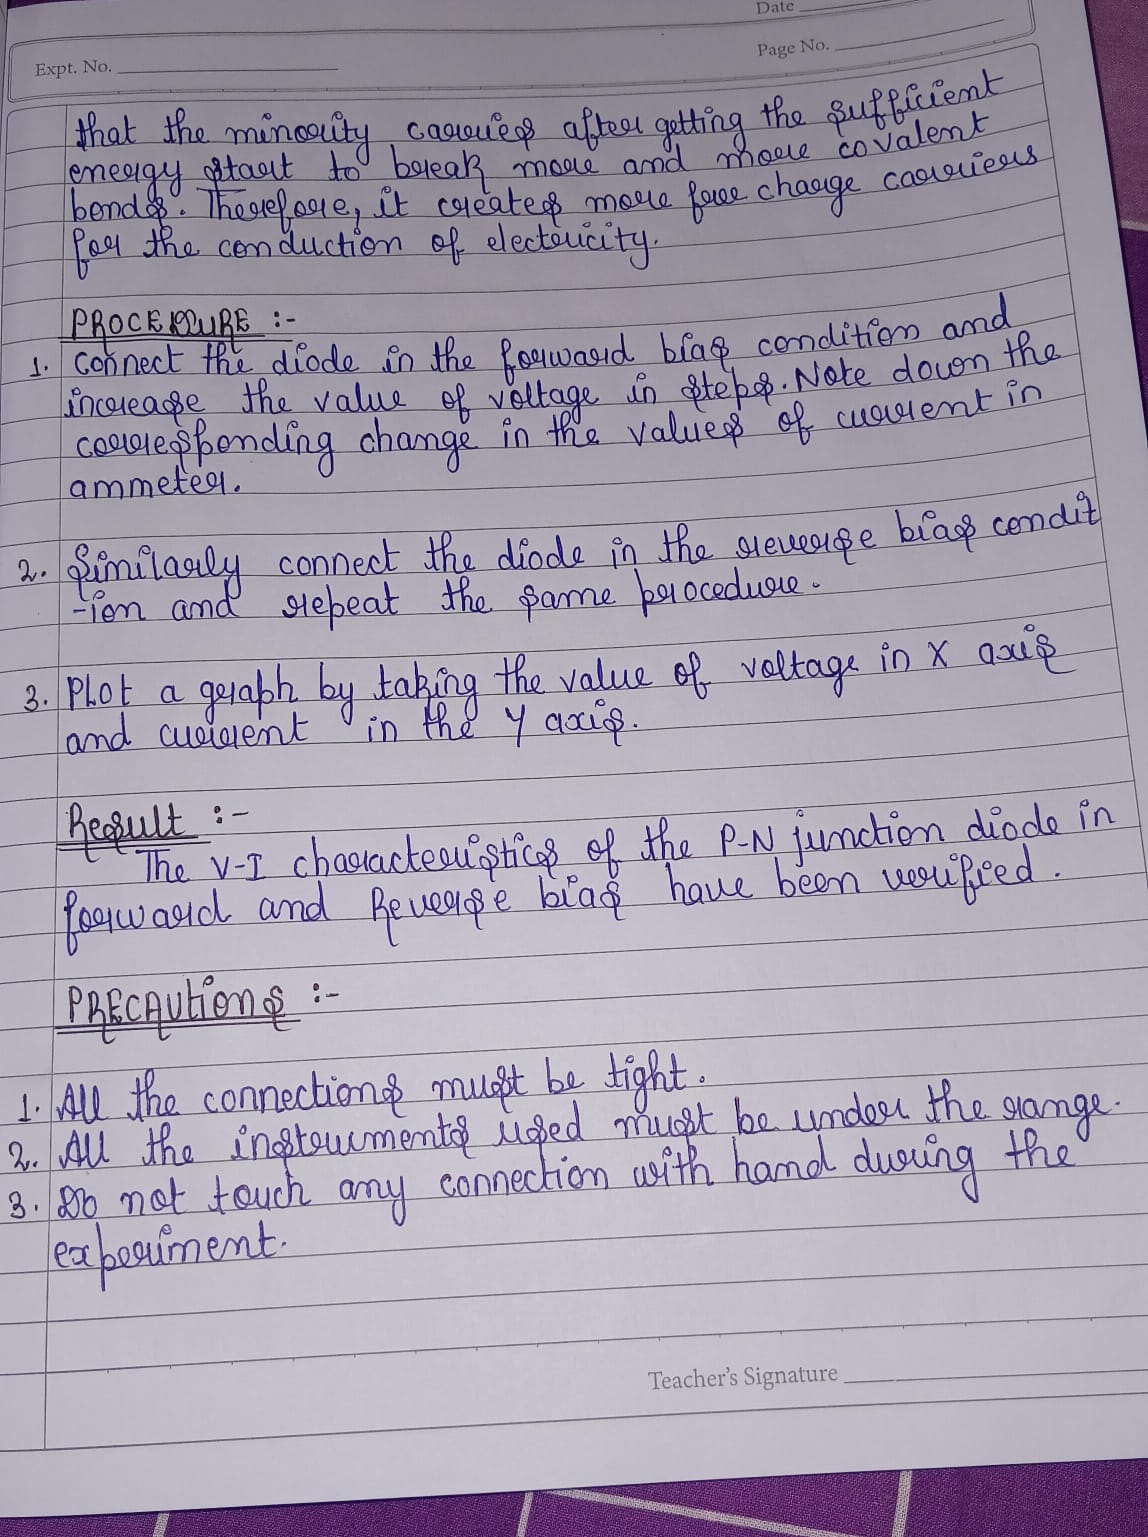 Date
Page No.
Expt. No.
that the minority carries after getting the sufficient
energy start to break more and more covalent
bonds. Therefore, it creates more free charge carriers
for the conduction of electricity.
PROCEDURE :-
1. Connect the diode in the forward bias condition and
increase the value of voltage in steps. Note down the
corresponding change in the values of current in
ammeter.
2. Similarly connect the diode in the reverse bias condit
-ion and repeat the same procedure.
3. Plot a graph by taking the value of voltage in X axis
and current in the Y axis.
Result :-
The V-I characteristics of the P-N junction diode in
forward and Reverse bias have been verified.
PRECAUtionS :-
1. All the connections must be tight.
2. All the instruments used must be under the range.
3. Do not touch any connection with hand during the
experiment.
Teacher's Signature